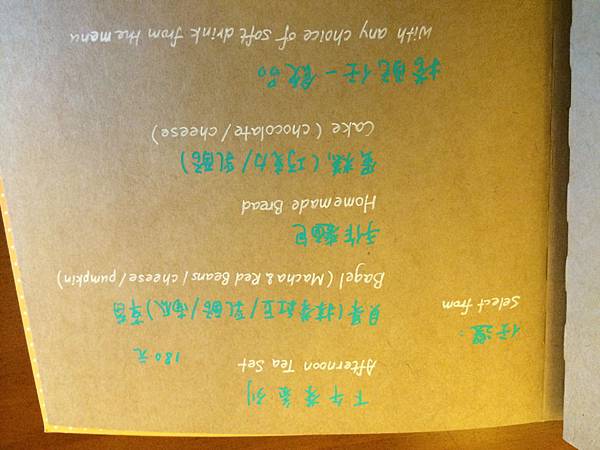 下午茶系列
Afternoon Tea Set
180元
任選:
Select from
(抹茶紅豆/乳酪/南瓜)
Bagel (Macha & Red Beans / cheese / pumpkin)
手作麵包
Homemade Bread
蛋糕(巧克力/乳酪)
Cake (chocolate / cheese)
搭配任一飲品
With any choice of soft drink from the menu